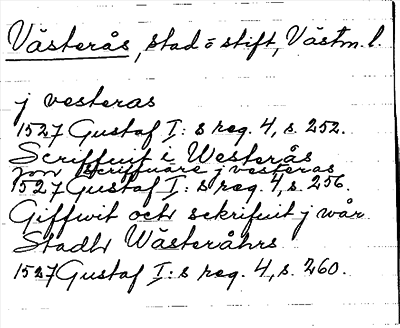 Västerås, stad o stift, Västm. l.
j vesteras
1527 Gustaf I:s reg. 4, s. 252.
Scriffuit i Westerås
scriffuare j vesteras
1527 Gustaf I:s reg. 4, s. 256.
Giffwit och skrifuit j wår
Stadh Wästeråhrs
1527 Gustaf I:s reg. 4, s. 260.